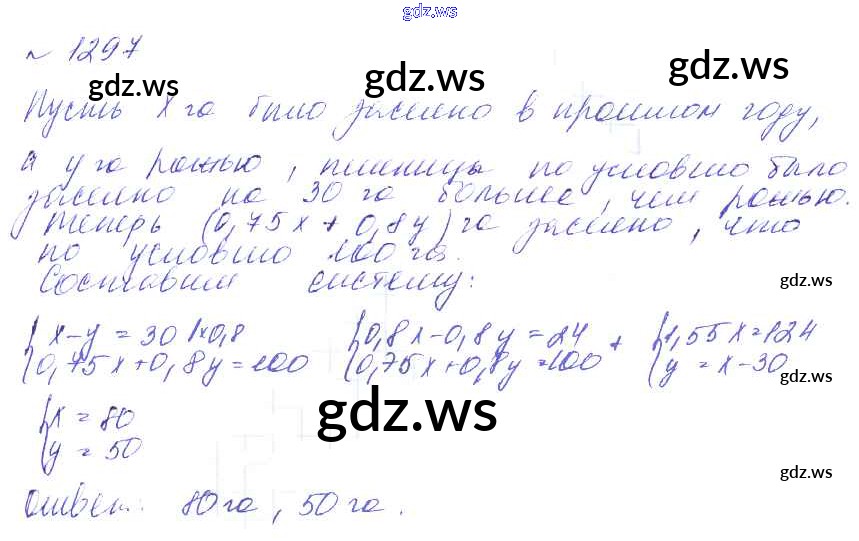 gdz.ws
№ 1297
gdz.ws gdz.ws gdz.ws
Пусть x га было засеяно в прошлом году,
а y га рожью, пшеницы по условию было
засеяно на 30 га больше, чем рожью.
Теперь (0,75x + 0,8y) га засеяно, что
по условию 100 га.
Составим систему:
gdz.ws
{ x - y = 30 |×0,8 { 0,8x - 0,8y = 24 + { 1,55x = 124
{ 0,75x + 0,8y = 100 { 0,75x + 0,8y = 100 { y = x - 30
gdz.ws
{ x = 80
gdz.ws
{ y = 50
gdz.ws
Ответ: 80 га, 50 га.